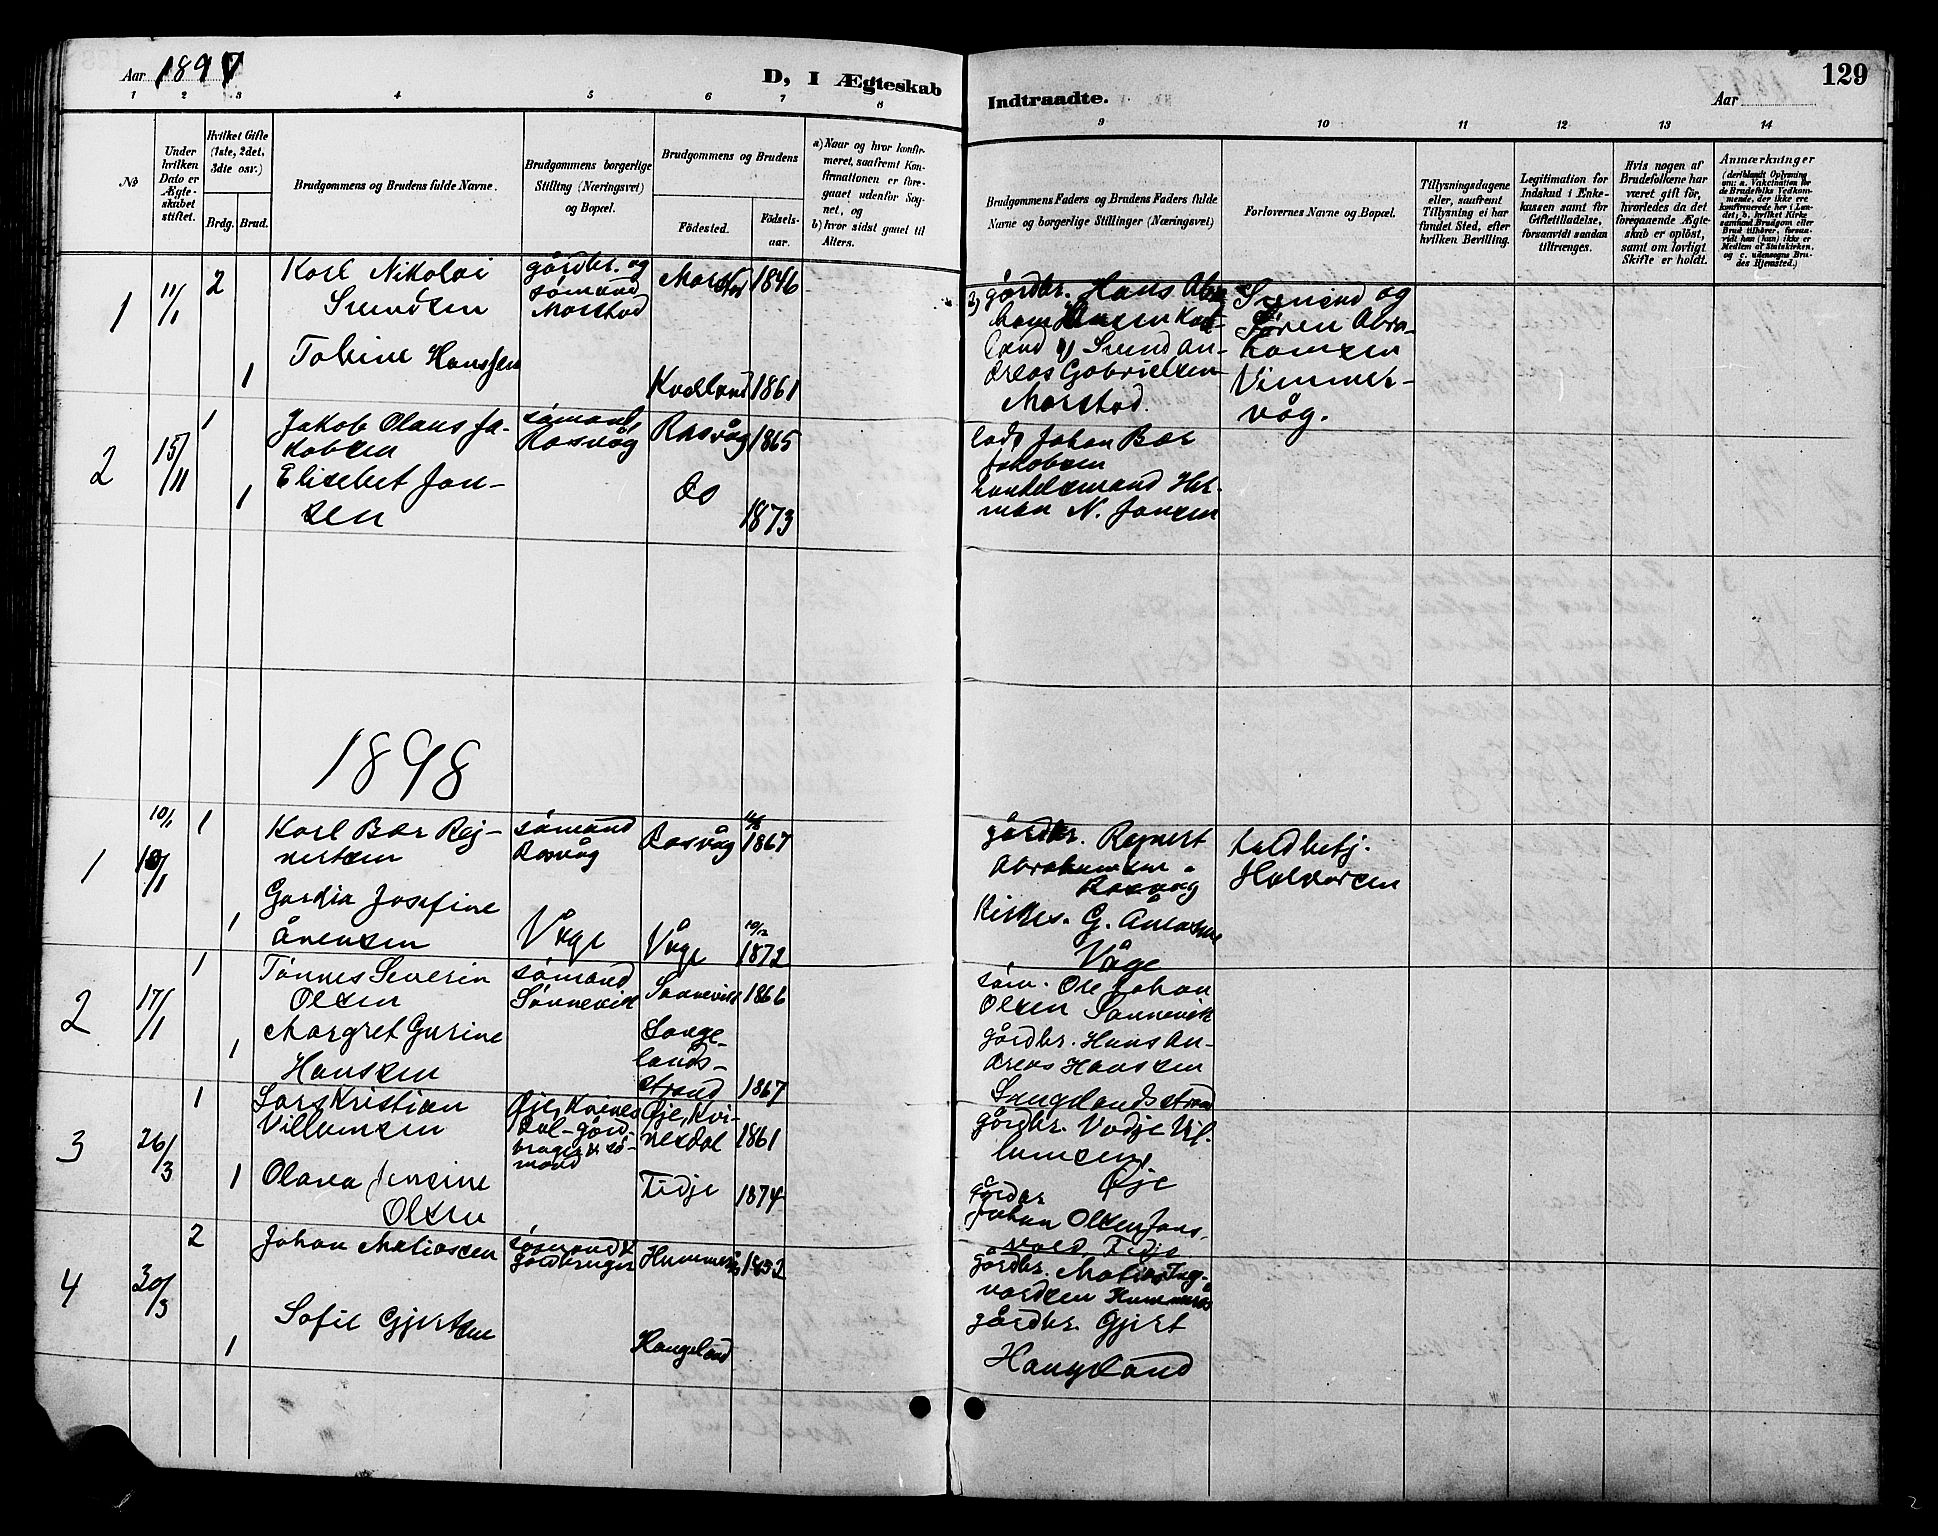 Aar 1897
D, I Ægteskab
Indtraadte.
Aar
129
1 2 3 4 5 6 7 8
9 10 11 12 13 14
No
Under
hvilken
Dato er
Ægte-
skabet
stiftet.
Hvilket Gifte
(1ste, 2det,
3die osv.)
Brdg. Brud.
Brudgommens og Brudens fulde Navne.
Brudgommens borgerlige
Stilling (Næringsvei)
og Bopæl.
Brudgommens og Brudens
Fødested.
Fødsels-
aar.
a) Naar og hvor konfir-
meret, saafremt Kon-
firmationen er fore-
gaaet udenfor Sog-
net, og
b) hvor sidst gaaet til
Alters.
Brudgommens Faders og Brudens Faders fulde
Navne og borgerlige Stillinger (Næringsvei)
Forlovernes Navne og Bopæl.
Tillysningsdagene
eller, saafremt
Tillysning ei har
fundet Sted, efter
hvilken Bevilling.
Legitimation for
Indskud i Enke-
kassen samt for
Giftetilladelse,
forsaavidt saadan
tiltrænges.
Hvis nogen af
Brudefolkene har
været gift før,
hvorledes da det
foregaaende Ægte-
skab er opløst,
samt om lovligt
Skifte er holdt.
Anmærkninger
(deriblandt Oplysning
om: a. Vakcination for
de Brudefolks Vedkom-
mende, der ikke ere
konfirmerede her i Lan-
det, b. hvilket Kirke
samfund Brudgom eller
Brud tilhører, forsaa-
vidt han (hun) ikke er
Medlem af Statskirken.
og c. udensogns Bru-
des Hjemsted.)
1 11/1 2
Karl Nikolai
Svendsen
gårdbr. og
sømand
Morstad
Morstad 1846
gårdbr. Hans Abra
ham Hansen Kvel-
land Svend An-
dreas Gabrielsen
Morstad.
Svend og
Søren Abra-
hamsen
Vimmer-
våg.
1 Tobine Hanssen
Kvelland 1861
2 15/11 1
Jakob Olaus Ja-
kobsen
sømand,
Rasvåg
Rasvåg 1865
Johan Bær
Jakobsen
1 Elisebet Jan-
sen
do
1873
handelsmand Her-
man N. Jansen
1898
1 10/1 1
10/1
Karl Bær Rej-
nertsen
sømand
Rasvåg
Rasvåg 1867
gårdbr. Rejnert
Abrahamsen
Rasvåg
toldbetj.
Halvorsen
1 Gardia Josefine
Ånensen
Våge
Våge 10/12
1872
Kirkes. G. Ånensen
Våge
2 17/1 1
Tønnes Severin
Olsen
sømand
Sannevik
Sannevik 1866
søm. Ole Johan
Olsen Sannevik
1 Margret Gurine
Hansen
Lange-
lands-
strand 1867
gårdbr. Hans An-
dreas Hanssen
Langelandsstrand
3 26/3 1
Lars Kristian
Villumsen
Øje, Kvines
dal - gård-
bruger & sø-
mand
Øje, Kvi-
nesdal 1861
gårdbr. Vadje Vil-
lumsen,
Øje
1 Olava Jensine
Olsen
Tidje 1874
gårdbr
Johan Olsen Jans-
vold Tidje
4 30/3 2
Johan Matiassen
sømand &
gårdbruger
Hummerås 1852
gårdbr. Matias Tag-
vardsen Hummerås
1 Sofie Gjertsen
Haugeland
gårdbr. Gjert
Haugeland